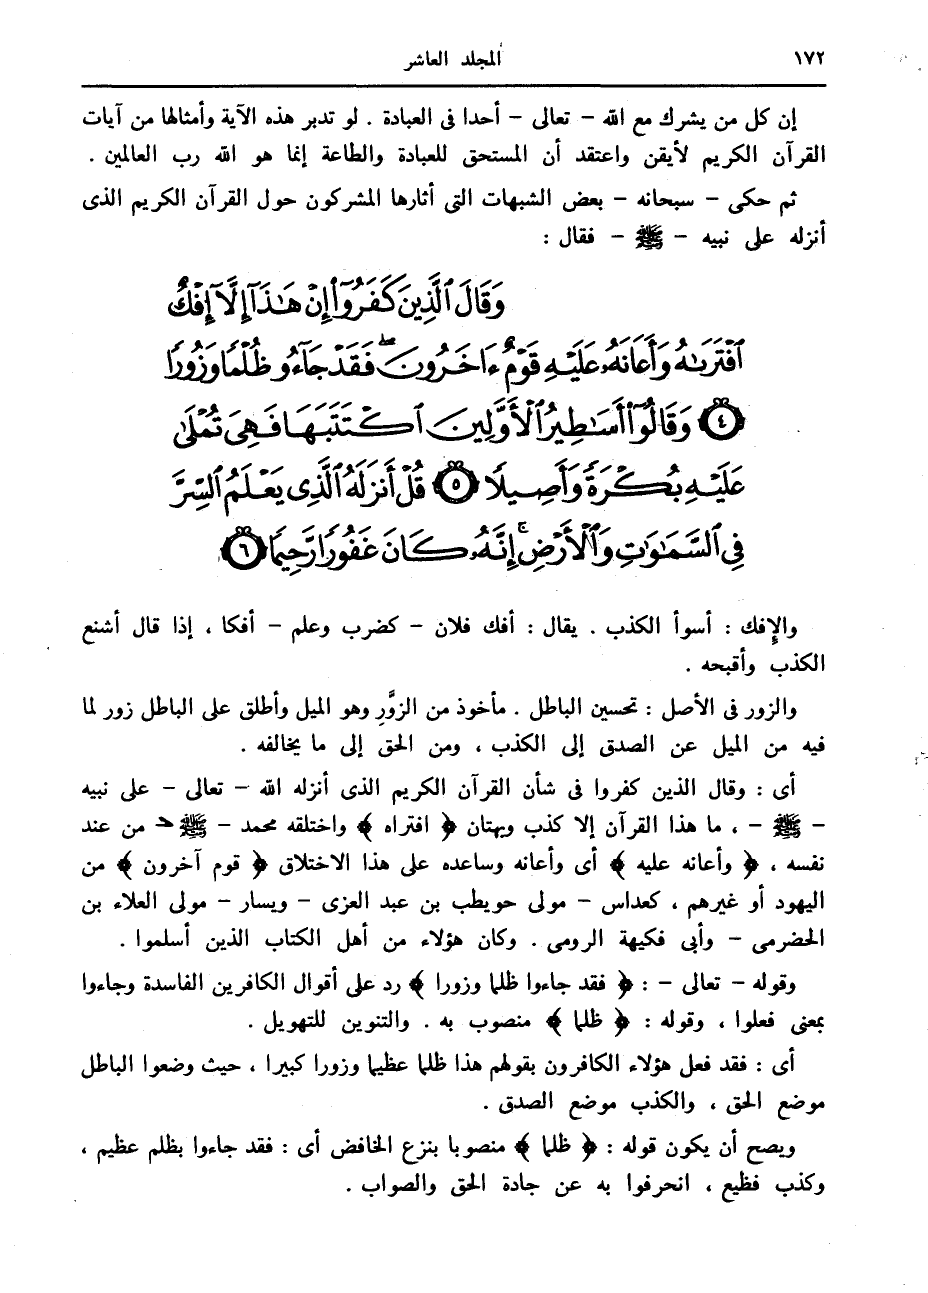 ١٧٢
المجلد العاشر
إن كل من يشرك مع الله – تعالى – أحدا فى العبادة . لو تدبر هذه الآية وأمثالها من آيات
القرآن الكريم لأيقن واعتقد أن المستحق للعبادة والطاعة إنما هو الله رب العالمين .
ثم حكى – سبحانه – بعض الشبهات التى أثارها المشركون حول القرآن الكريم الذى
أنزله على نبيه – ﷺ – فقال :
وَقَالَ ٱلَّذِينَ كَفَرُوٓا۟ إِنْ هَـٰذَآ إِلَّآ إِفْكٌ
ٱفْتَرَىٰهُ وَأَعَانَهُۥ عَلَيْهِ قَوْمٌ ءَاخَرُونَ ۖ فَقَدْ جَآءُو ظُلْمًا وَزُورًا
﴿٤﴾ وَقَالُوٓا۟ أَسَـٰطِيرُ ٱلْأَوَّلِينَ ٱكْتَتَبَهَا فَهِىَ تُمْلَىٰ
عَلَيْهِ بُكْرَةً وَأَصِيلًا ﴿٥﴾ قُلْ أَنزَلَهُ ٱلَّذِى يَعْلَمُ ٱلسِّرَّ
فِى ٱلسَّمَـٰوَٰتِ وَٱلْأَرْضِ ۚ إِنَّهُۥ كَانَ غَفُورًا رَّحِيمًا ﴿٦﴾
والإِفك : أسوأ الكذب . يقال : أفك فلان – كضرب وعلم – أفكا ، إذا قال أشنع
الكذب وأقبحه .
والزور فى الأصل : تحسين الباطل . مأخوذ من الزوَّرِ وهو الميل وأطلق على الباطل زور لما
فيه من الميل عن الصدق إلى الكذب ، ومن الحق إلى ما يخالفه .
أى : وقال الذين كفروا فى شأن القرآن الكريم الذى أنزله الله – تعالى – على نبيه
– ﷺ – ، ما هذا القرآن إلا كذب وبهتان ﴿ افتراه ﴾ واختلقه محمد – ﷺ – من عند
نفسه ، ﴿ وأعانه عليه ﴾ أى وأعانه وساعده على هذا الاختلاق ﴿ قوم آخرون ﴾ من
اليهود أو غيرهم ، كعداس – مولى حويطب بن عبد العزى – ويسار – مولى العلاء بن
الحضرمى – وأبى فكيهة الرومى . وكان هؤلاء من أهل الكتاب الذين أسلموا .
وقوله – تعالى – : ﴿ فقد جاءوا ظلما وزورا ﴾ رد على أقوال الكافرين الفاسدة وجاءوا
بمعنى فعلوا ، وقوله : ﴿ ظلما ﴾ منصوب به . والتنوين للتهويل .
أى : فقد فعل هؤلاء الكافرون بقولهم هذا ظلما عظيما وزورا كبيرا ، حيث وضعوا الباطل
موضع الحق ، والكذب موضع الصدق .
ويصح أن يكون قوله : ﴿ ظلما ﴾ منصوبا بنزع الخافض أى : فقد جاءوا بظلم عظيم ،
وكذب فظيع ، انحرفوا به عن جادة الحق والصواب .